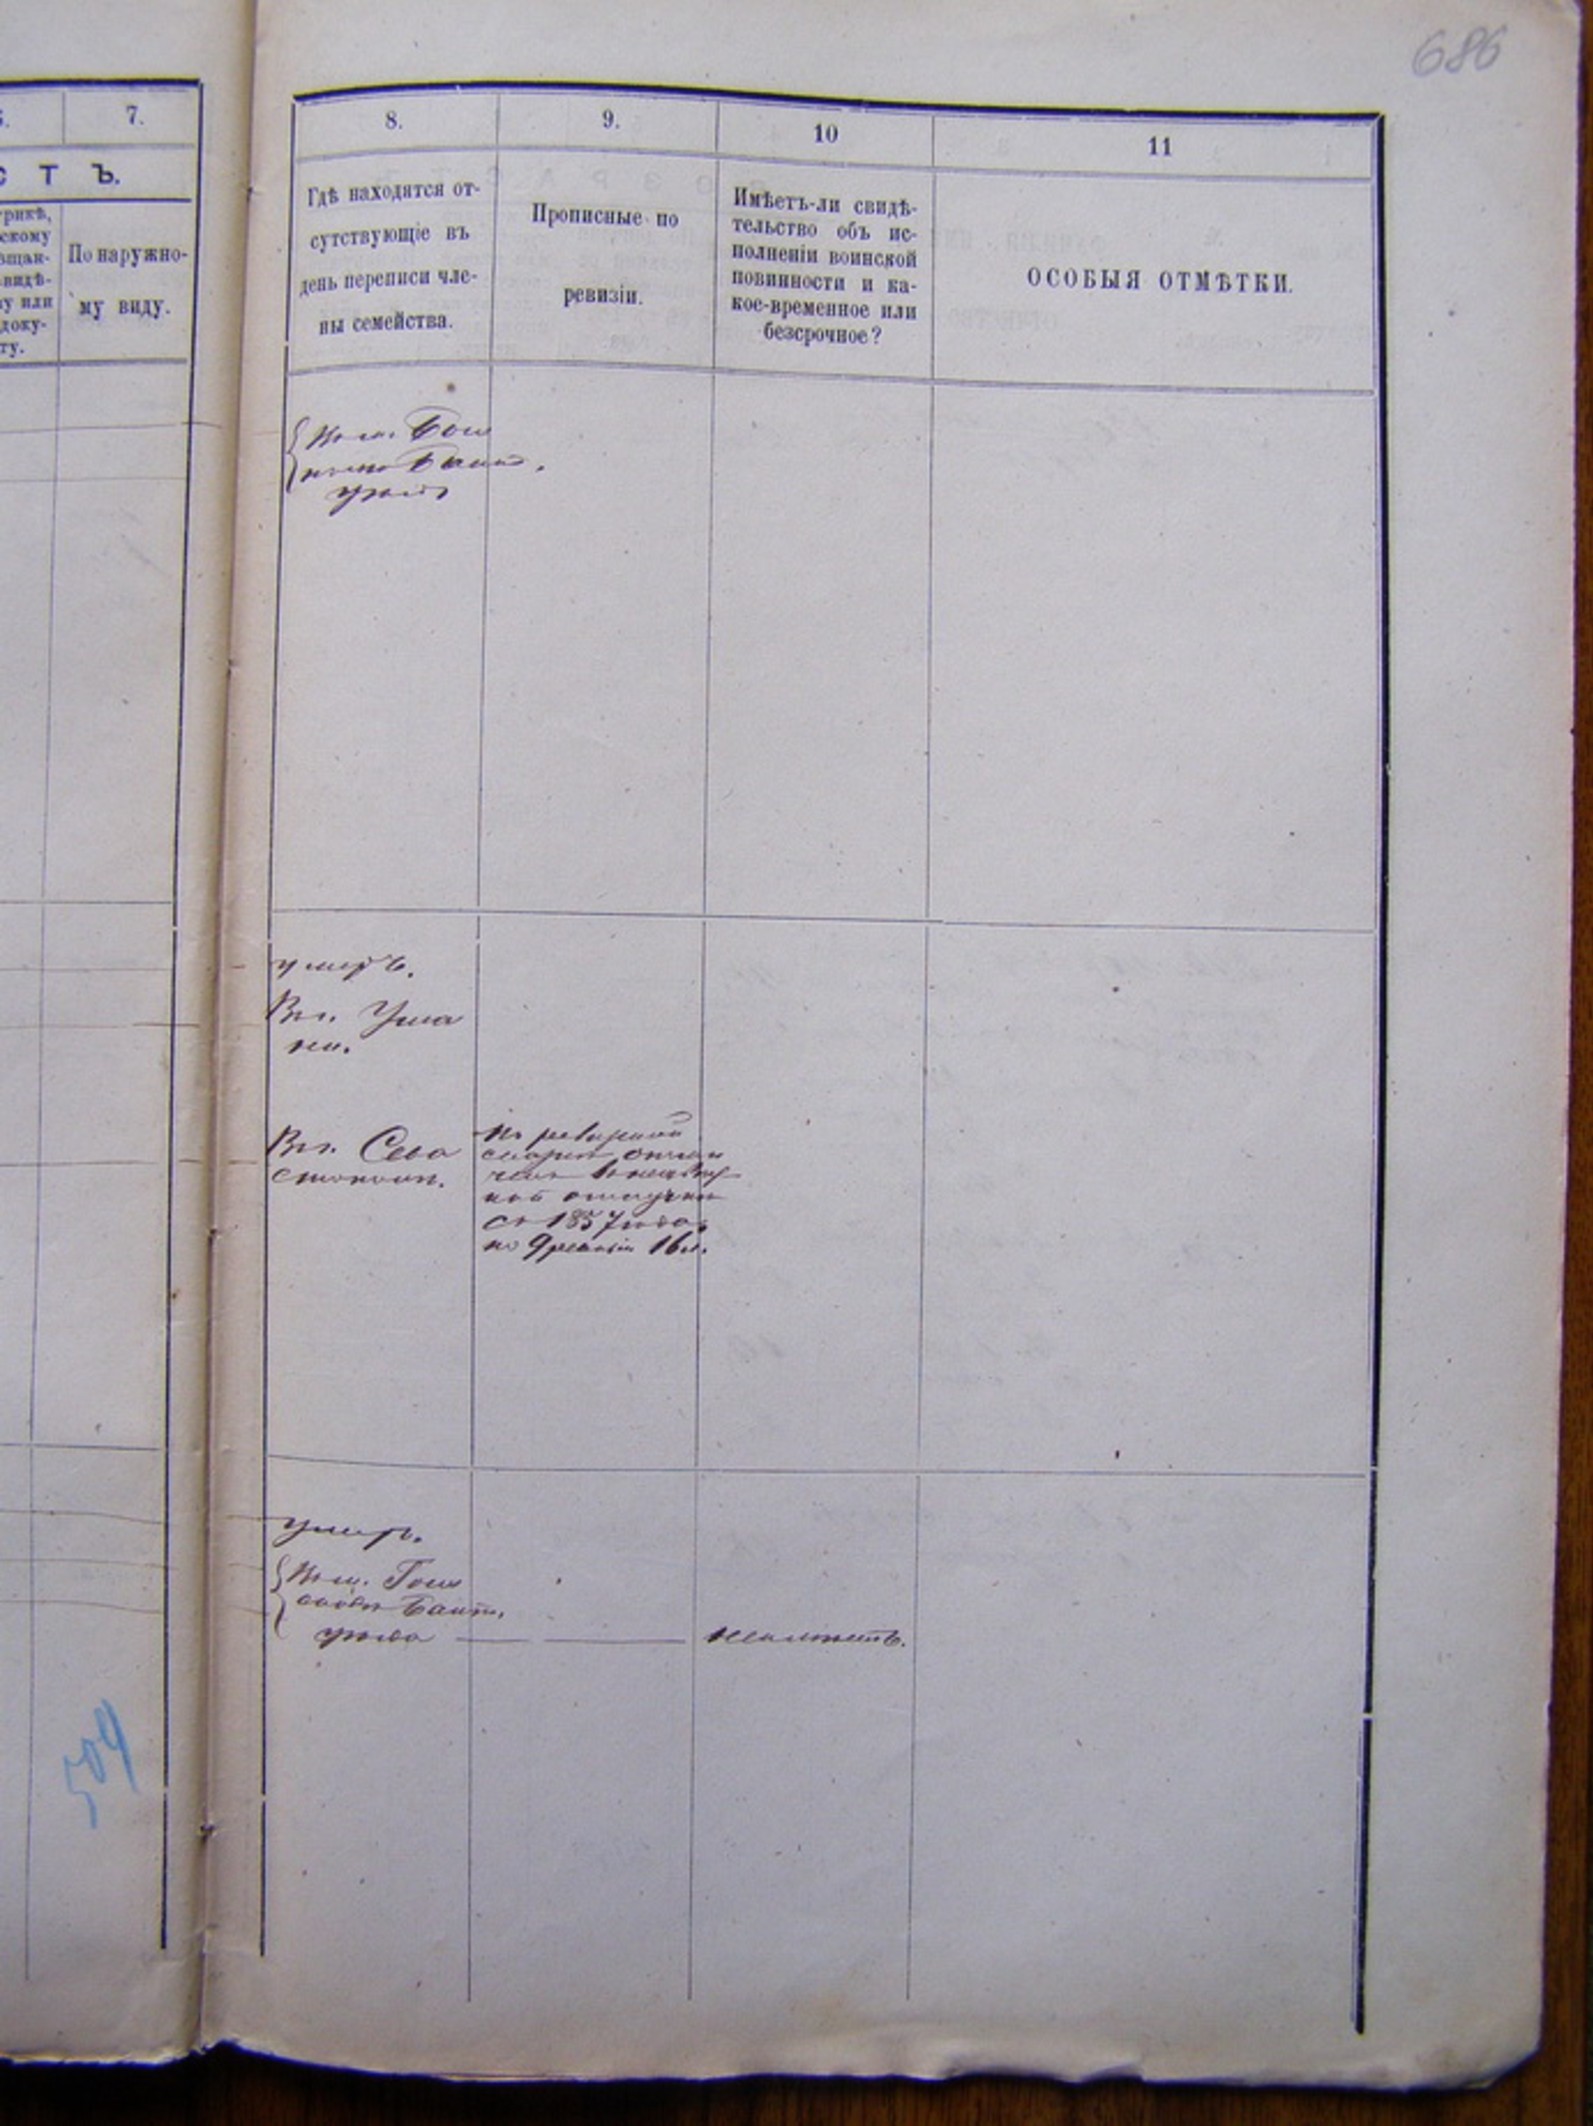 686
7.
С Т Ъ.
рикѣ,
скому
видѣ-
у или
доку-
ту.
По наружно-
му виду.
8.
Гдѣ находятся от-
сутствующіе въ
день переписи чле-
ны семейства.
9.
Прописные по
ревизіи.
10
Имѣетъ-ли свидѣ-
тельство объ ис-
полненіи воинской
повинности и ка-
кое-временное или
безсрочное?
11
ОСОБЫЯ ОТМѢТКИ.
умеръ.
Въ г. Ума
ни.
Въ г. Сева
стопол.
По ревизской
съ 1857 года,
по 9 ревизіи 16 л.
умеръ.
уѣзда
504